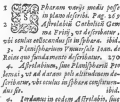 Sphæram varijs modis posse
in plano describi. 2. & 3.
Astrolabij Catholici Gem-
ma Frisij, vt describatur,
vbi oculus collocandus sit in sphæra. ibid.
2. Planisphærium Vniuersale Ioan. de
Roias quo fundamento describatur, ibid.
3. Astrolabium, seu Planisphærium
Ptolemæi, vt ad datam poli altitudinem
describatur, & vbi oculus constituendus.
ibid.
4. Iordanus in eodem Astrolabio,